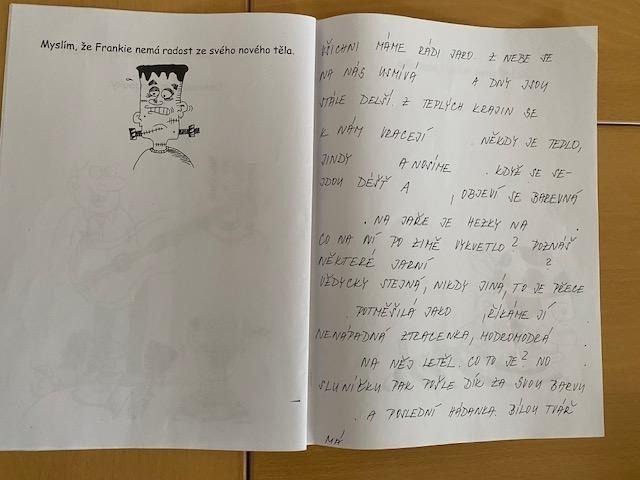 Myslím, že Frankie nemá radost ze svého nového těla.
VŠICHNI MÁME RÁDI JARO. Z NEBE SE
NA NÁS USMÍVÁ A DNY JSOU
STÁLE DELŠÍ. Z TEPLÝCH KRAJIN SE
K NÁM VRACEJÍ . NĚKDY JE TEPLO,
JINDY A NOSÍME . KDYŽ SE SE-
JDOU DÉŠŤ A , OBJEVÍ SE BAREVNÁ
. NA JAŘE JE HEZKY NA .
CO NA NÍ PO ZIMĚ VYKVETLO? POZNÁŠ
NĚKTERÉ JARNÍ ?
VŽDYCKY STEJNÁ, NIKDY JINÁ, TO JE PŘECE
. POTMĚŠILÁ JAKO , ŘÍKÁME JÍ
NENÁPADNÁ ZTRACENKA, MODROMODRÁ .
NA NĚJ LETĚL. CO TO JE? NO .
SLUNÍČKU PAK POŠLE DÍK ZA SVOU BARVU
. A POSLEDNÍ HÁDANKA. BÍLOU TVÁŘ
MÁ